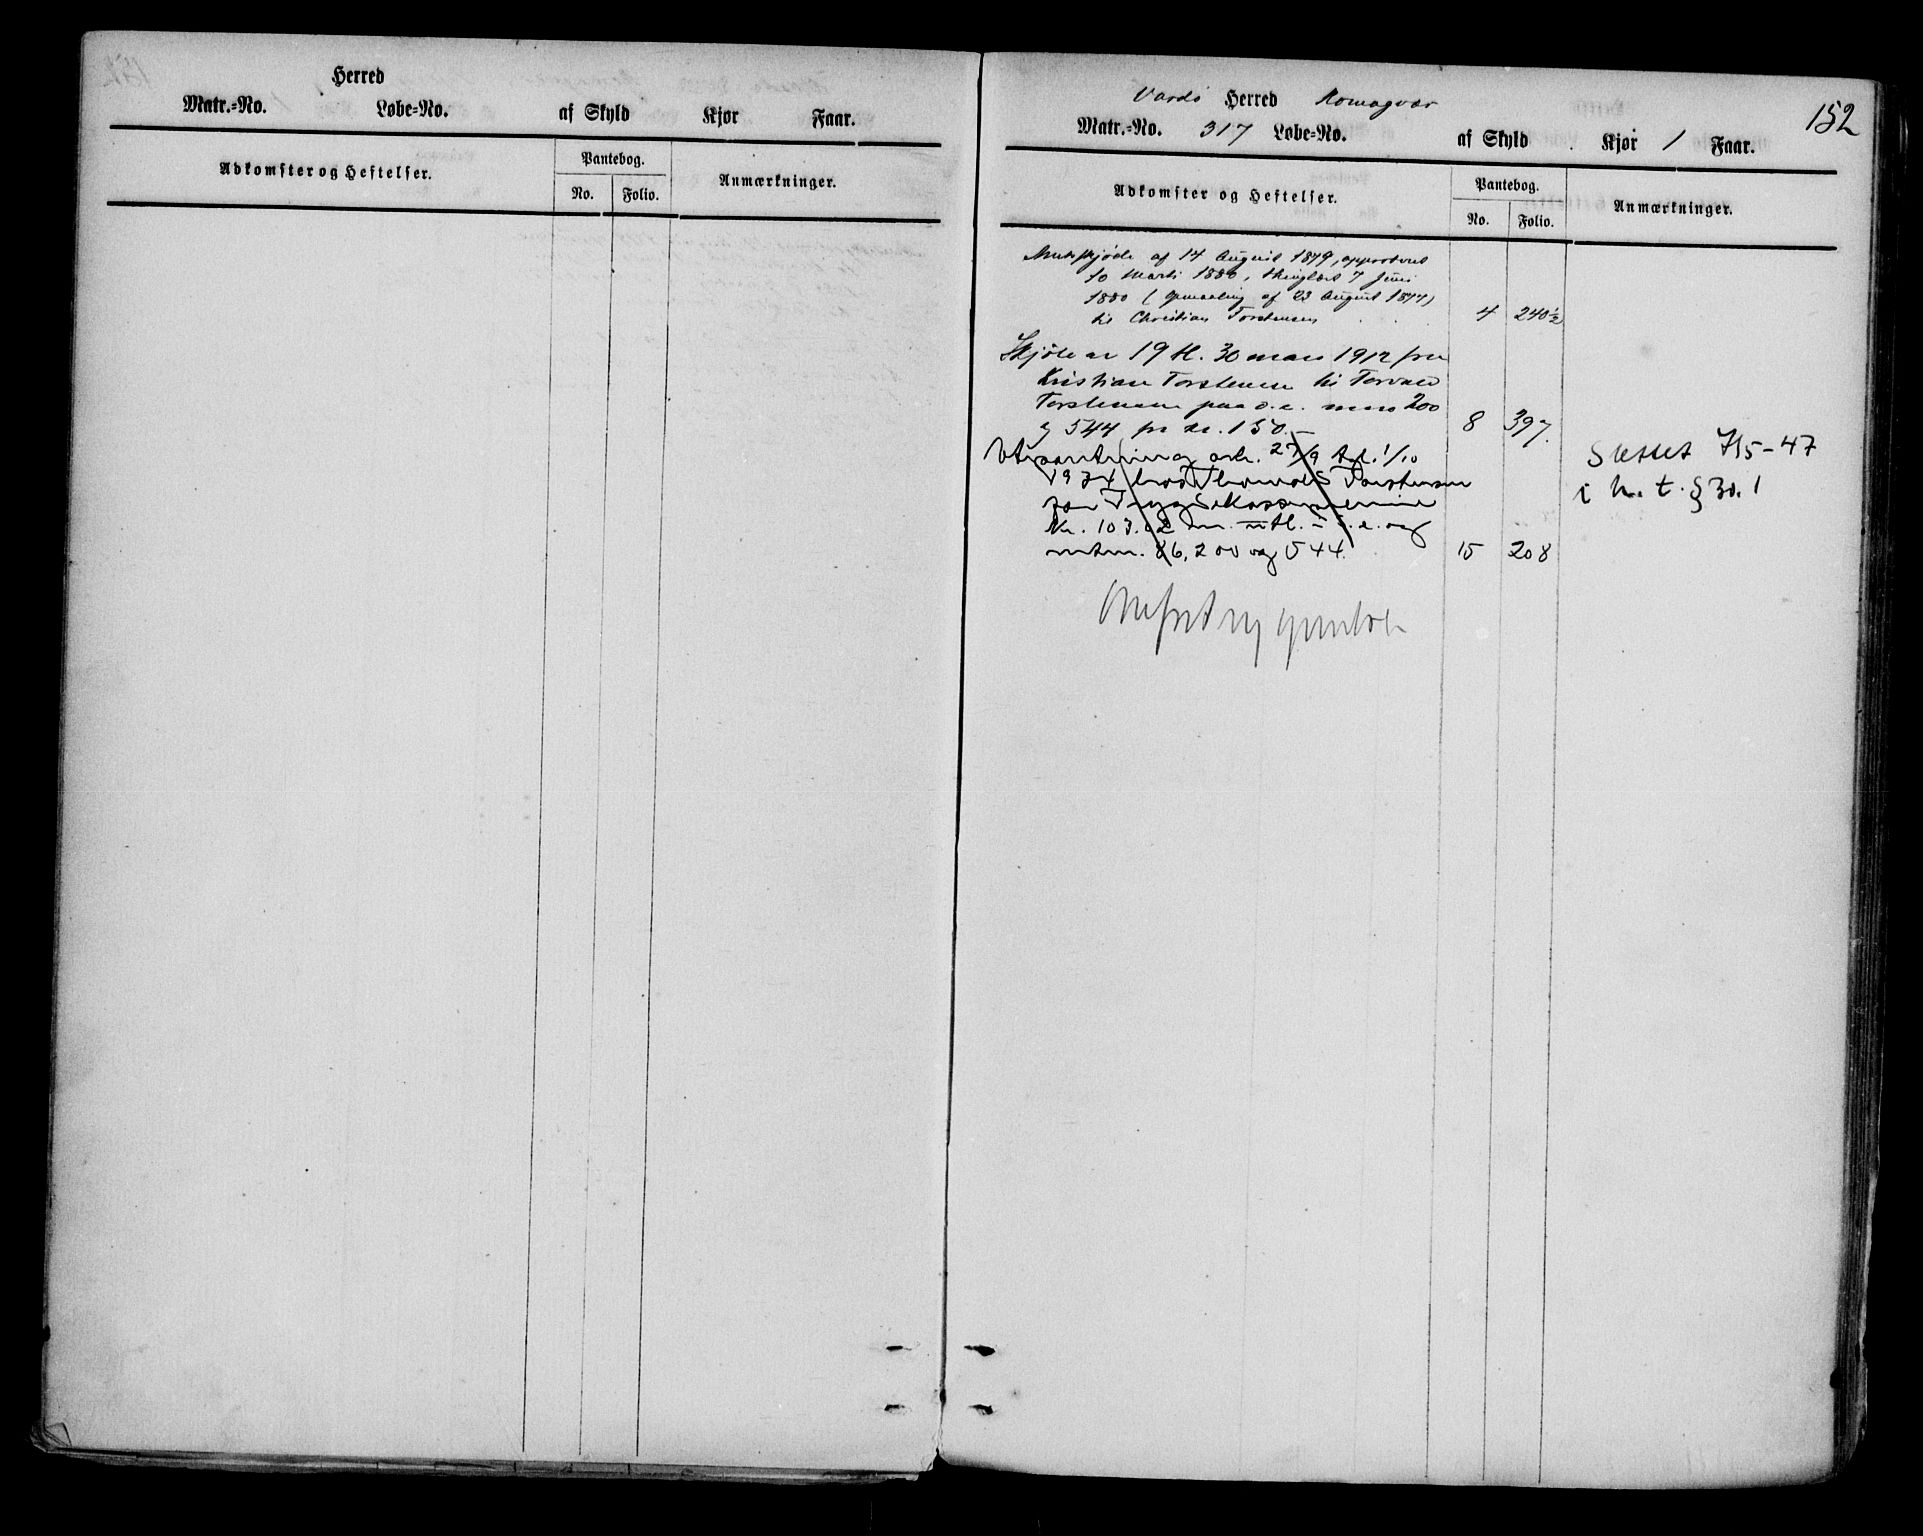 Herred
Matr.=No. Løbe=No. af Skyld Kjør Faar.
Adkomster og Heftelser. Pantebog. Anmærkninger.
No. Folio.
152
Vardö Herred Komagvær
Matr.=No. 317 Løbe=No. af Skyld Kjør 1 Faar.
Adkomster og Heftelser. Pantebog. Anmærkninger.
No. Folio.
af 14 August 1879, approberet
10 Marts 1880, thinglæst 7 Juni
1880 (Opmaaling af 23 August 1877)
til Christian Torstensen 4 240½
Skjöte av 19 tl. 30 mars 1912 fra
Kristian Torstensen til Torvald
Torstensen paa d.e. m.no 200
og 544 for kr. 150.– 8 397.
Utpantning avh. 27/9 tgl. 1/10
1934 hos Thorvald Torstensen
for Trygdekassepremie
Kr. 103.02 m. d.e. og
m.nr. 86, 200 og 544. 15 208
Slettet 7/5-47
i h. t. § 30. 1